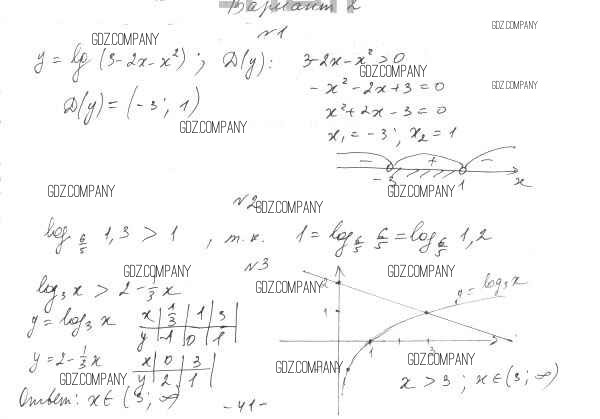 Вариант 2
GDZ.COMPANY
№1
GDZ.COMPANY
y = lg (3-2x-x²); D(y): 3-2x-x²>0
GDZ.COMPANY
-x²-2x+3=0
GDZ.COMPANY
D(y)=(-3; 1)
x²+2x-3=0
GDZ.COMPANY
x₁=-3; x₂=1
- + -
-3 1 x
GDZ.COMPANY
GDZ.COMPANY
№2
GDZ.COMPANY
log_{6/5} 1,3 > 1, т.к. 1 = log_{6/5} 6/5 = log_{6/5} 1,2
№3
GDZ.COMPANY
GDZ.COMPANY
log₃x > 2-1/3x
GDZ.COMPANY
2
y=log₃x
y=log₃x
x | 1/3 | 1 | 3 |
y | -1 | 0 | 1 |
GDZ.COMPANY
1
1 3
y=2-1/3x
x | 0 | 3 |
y | 2 | 1 |
GDZ.COMPANY
GDZ.COMPANY
GDZ.COMPANY
x > 3; x∈(3; ∞)
Ответ: x∈(3; ∞)
-41-